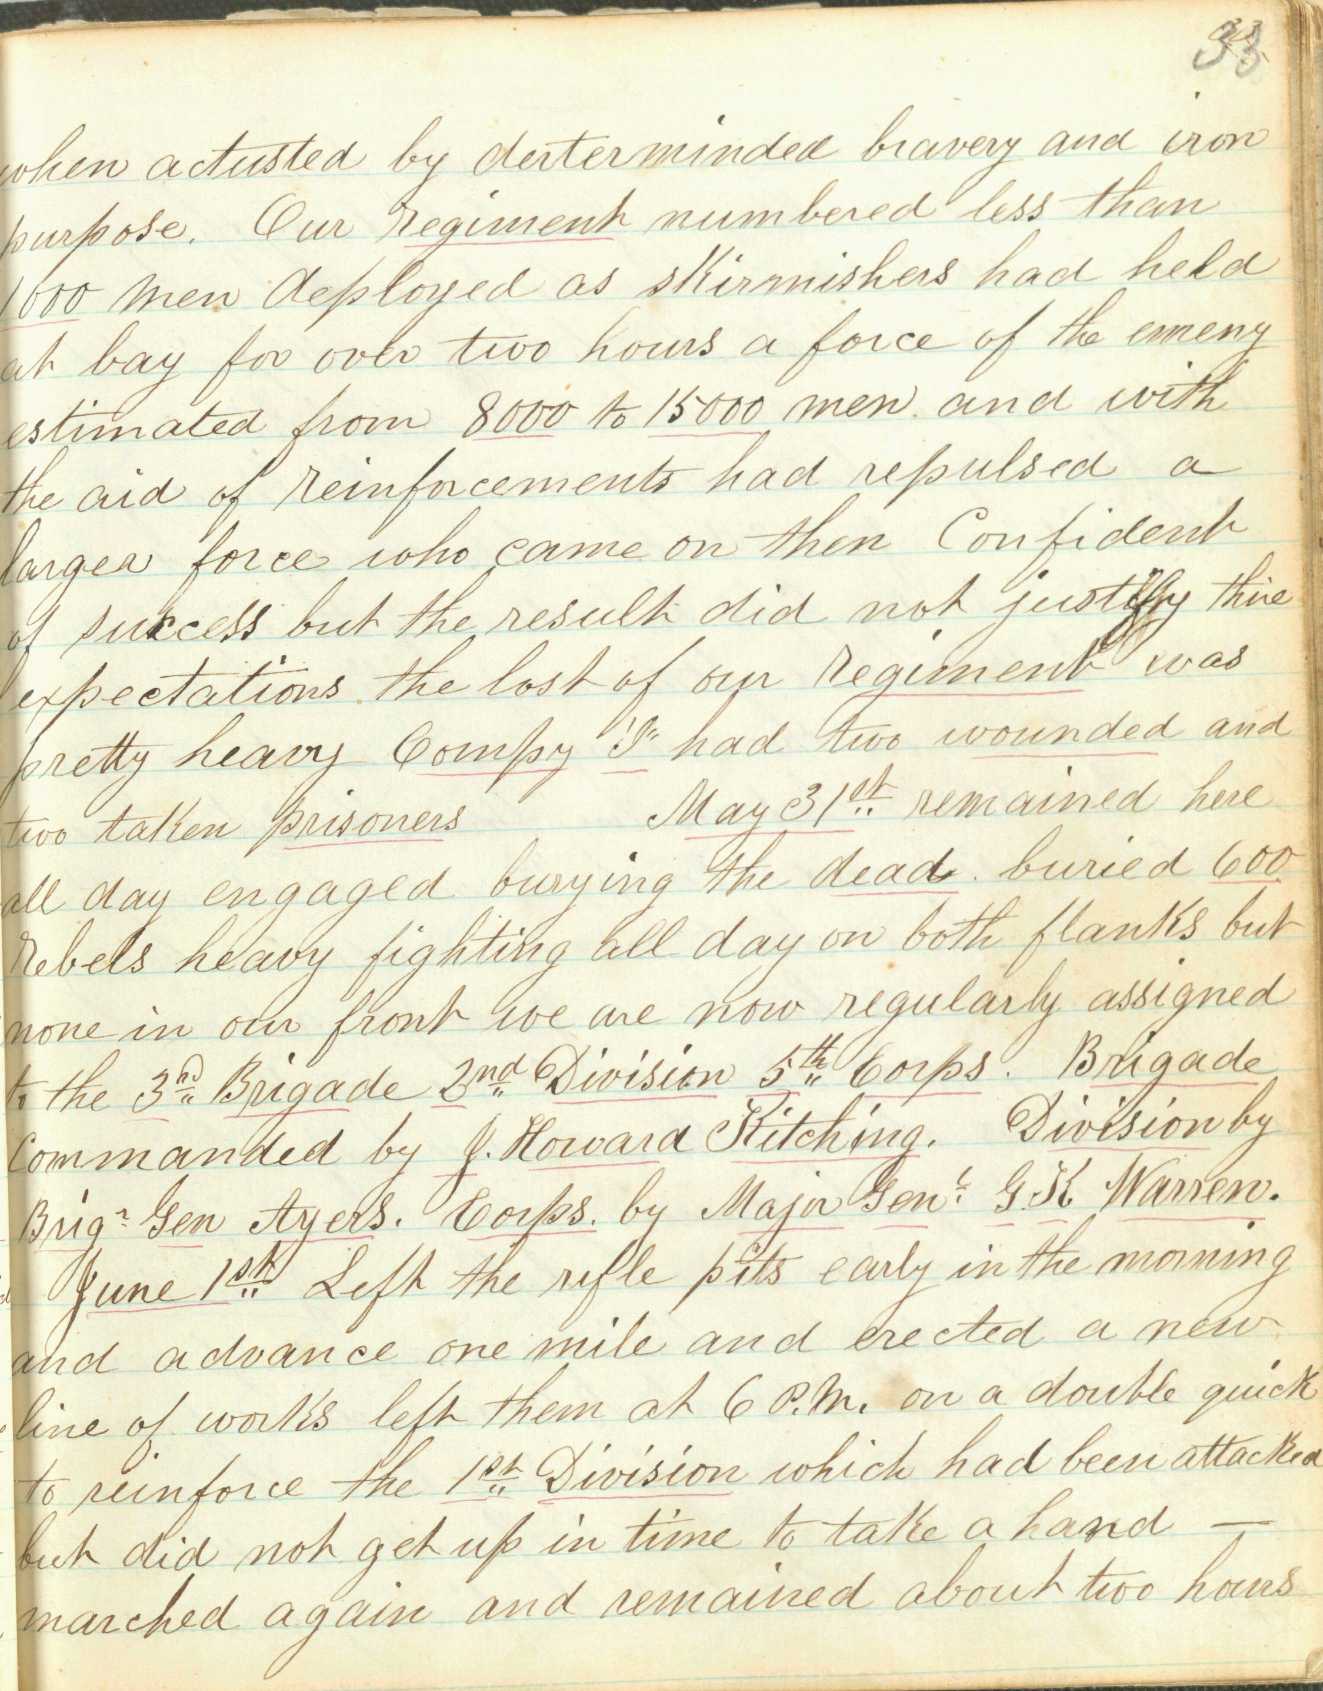 33
when actusted by derterminded bravery and iron
purpose. Our regiment numbered less than
1000 men deployed as skirmishers had held
at bay for over two hours a force of the emeny
estimated from 8000 to 15000 men. and with
the aid of reinforcements had repulsed a
larger force who came on then Confident
of success but the result did not justify thire
expectations. the lost of our regiment was
pretty heavy Compy "I" had two wounded and
two taken prisoners May 31st remained here
all day engaged burying the dead. buried 600
rebels heavy fighting all day on both flanks but
none in our front we are now regularly assigned
to the 3rd Brigade 2nd Division 5th Corps. Brigade
Commanded by J. Howard Kitching. Division by
Brigr Gen Ayers. Corps. by Major Genl G.K Warren.
June 1st Left the rifle pits early in the morning
and advance one mile and erected a new
line of works left them at 6 P.M. on a double quick
to reinforce the 1st Division which had been attacked
but did not get up in time to take a hand —
marched again and remained about two hours